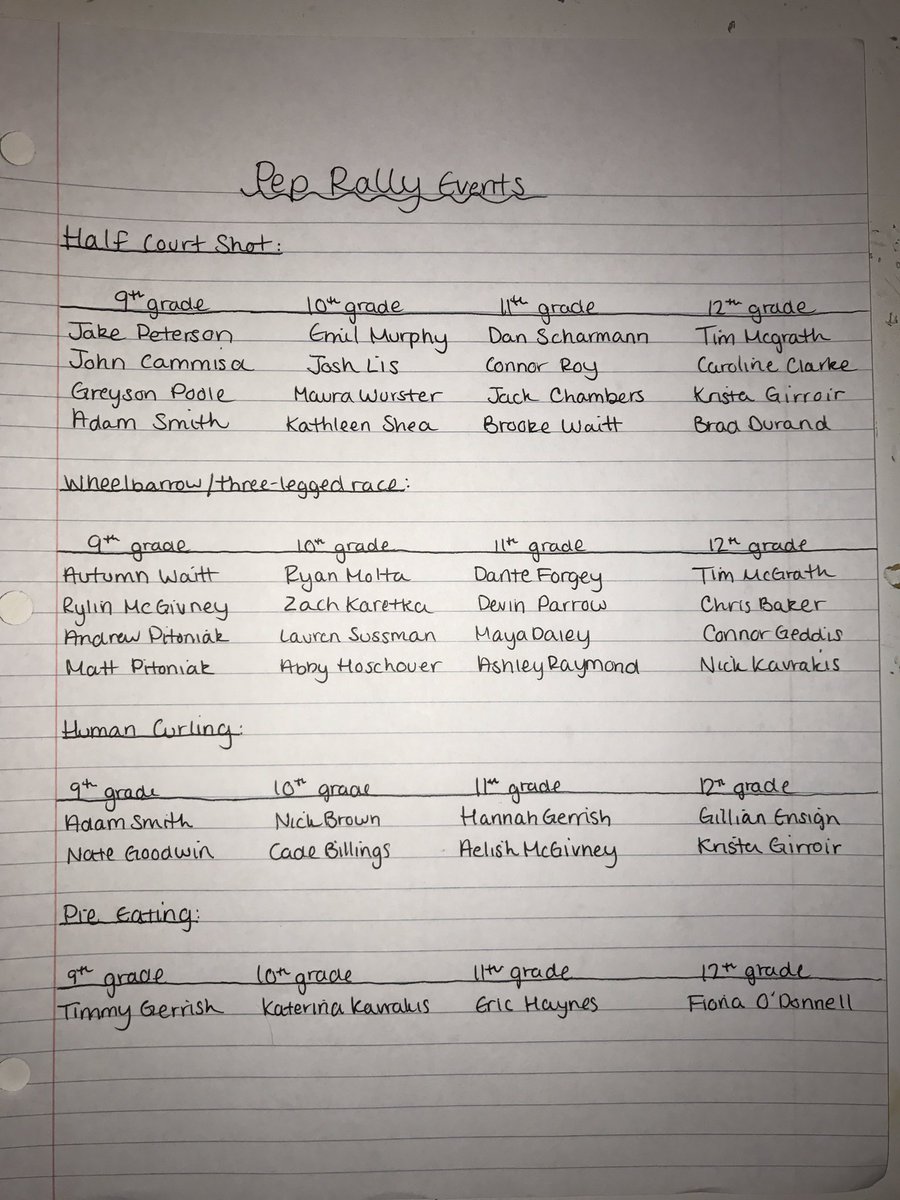 Pep Rally Events
Half Court Shot:
9th grade 10th grade 11th grade 12th grade
Jake Peterson Emil Murphy Dan Scharmann Tim Mcgrath
John Cammisa Josh Lis Connor Roy Caroline Clarke
Greyson Poole Maura Wurster Jack Chambers Krista Girroir
Adam Smith Kathleen Shea Brooke Waitt Brad Durand
Wheelbarrow/three-legged race:
9th grade 10th grade 11th grade 12th grade
Autumn Waitt Ryan Molta Dante Forgey Tim McGrath
Rylin McGivney Zach Karetka Devin Parrow Chris Baker
Andrew Pitoniak Lauren Sussman Maya Daley Connor Geddis
Matt Pitoniak Abby Hoschouer Ashley Raymond Nick Kavrakis
Human Curling:
9th grade 10th grade 11th grade 12th grade
Adam Smith Nick Brown Hannah Gerrish Gillian Ensign
Nate Goodwin Cade Billings Aelish McGivney Krista Girroir
Pie Eating:
9th grade 10th grade 11th grade 12th grade
Timmy Gerrish Katerina Kavrakis Eric Haynes Fiona O'Donnell